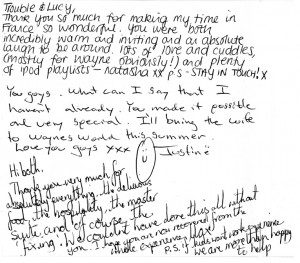 Trouble & Lucy,
Thank you so much for making my time in
France so wonderful. you were both
incredibly warm and inviting and an absolute
laugh to be around. lots of love and cuddles,
(mostly for wayne obviously!) and plenty
of ipod playlists - natasha xx p s - STAY IN TOUCH! X
You guys. What can I say that I
haven't already. You made it possible
and very special. I'll bring the wife
to waynes world this summer.
Love you guys xxx Justine
Hi both.
Thank you very much for
absolutely everything, the delicious
food, the hospitality, the master
suite, and of course the
'fixing'. We couldn't have done this all without
you. I hope you are now recovered from the
whole experience, Max
P.S. if kids want work experience
we are more than happy
to help